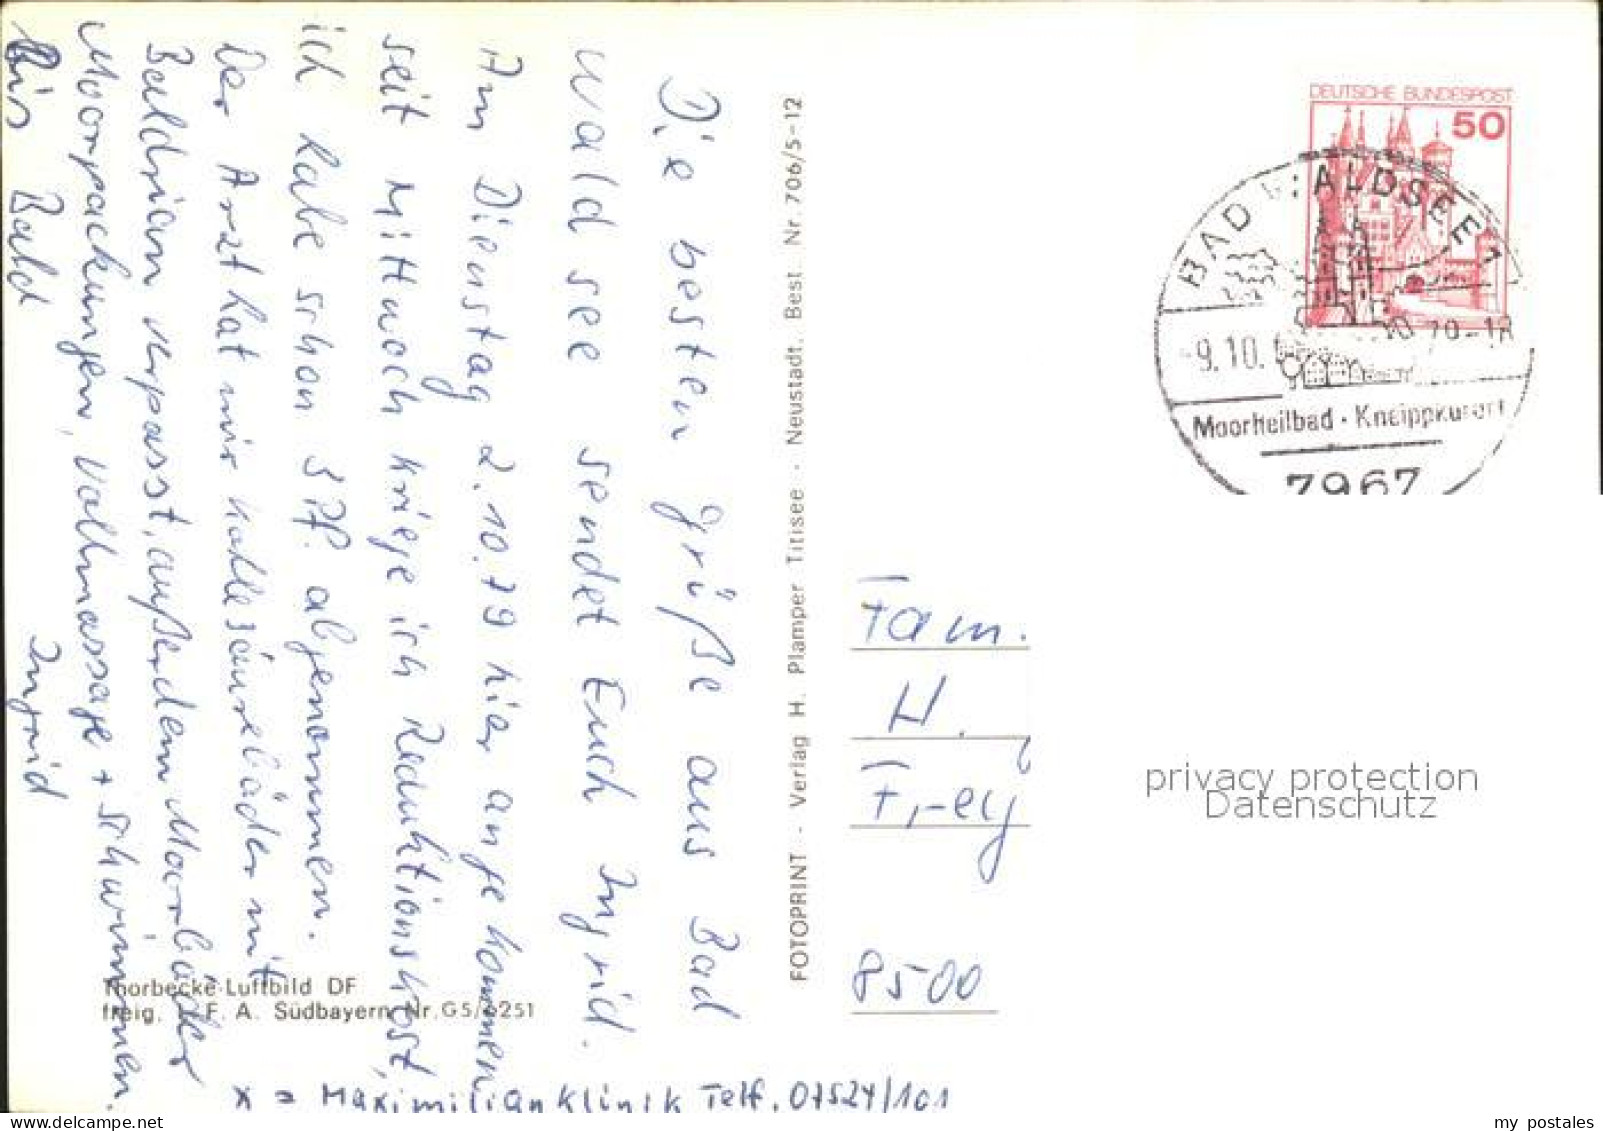 Die besten Grüße aus Bad
Waldsee sendet Euch Ingrid.
Am Dienstag 2.10.79 hier angekommen
seit Mittwoch kriege ich Reduktionskost,
ich habe schon 3 Pf. abgenommen.
Der Arzt hat mir Kohlesäurebäder mit
Baldrian verpasst, außerdem Moorbäder
Moorpackungen, Vollmassage + Schwimmen.
Bis Bald
Ingrid
x = Maximilianklinik Telf. 07524/101
Thorbecke-Luftbild DF
freig. F. A. Südbayern Nr. G5/6251
FOTOPRINT - Verlag H. Plamper Titisee - Neustadt, Best. Nr. 706/5-12
DEUTSCHE BUNDESPOST
50
BAD WALDSEE 1
-9.10. 79-18
Moorheilbad · Kneippkurort
7967
Fam.
H.
Frey
8500
privacy protection
Datenschutz
my postales